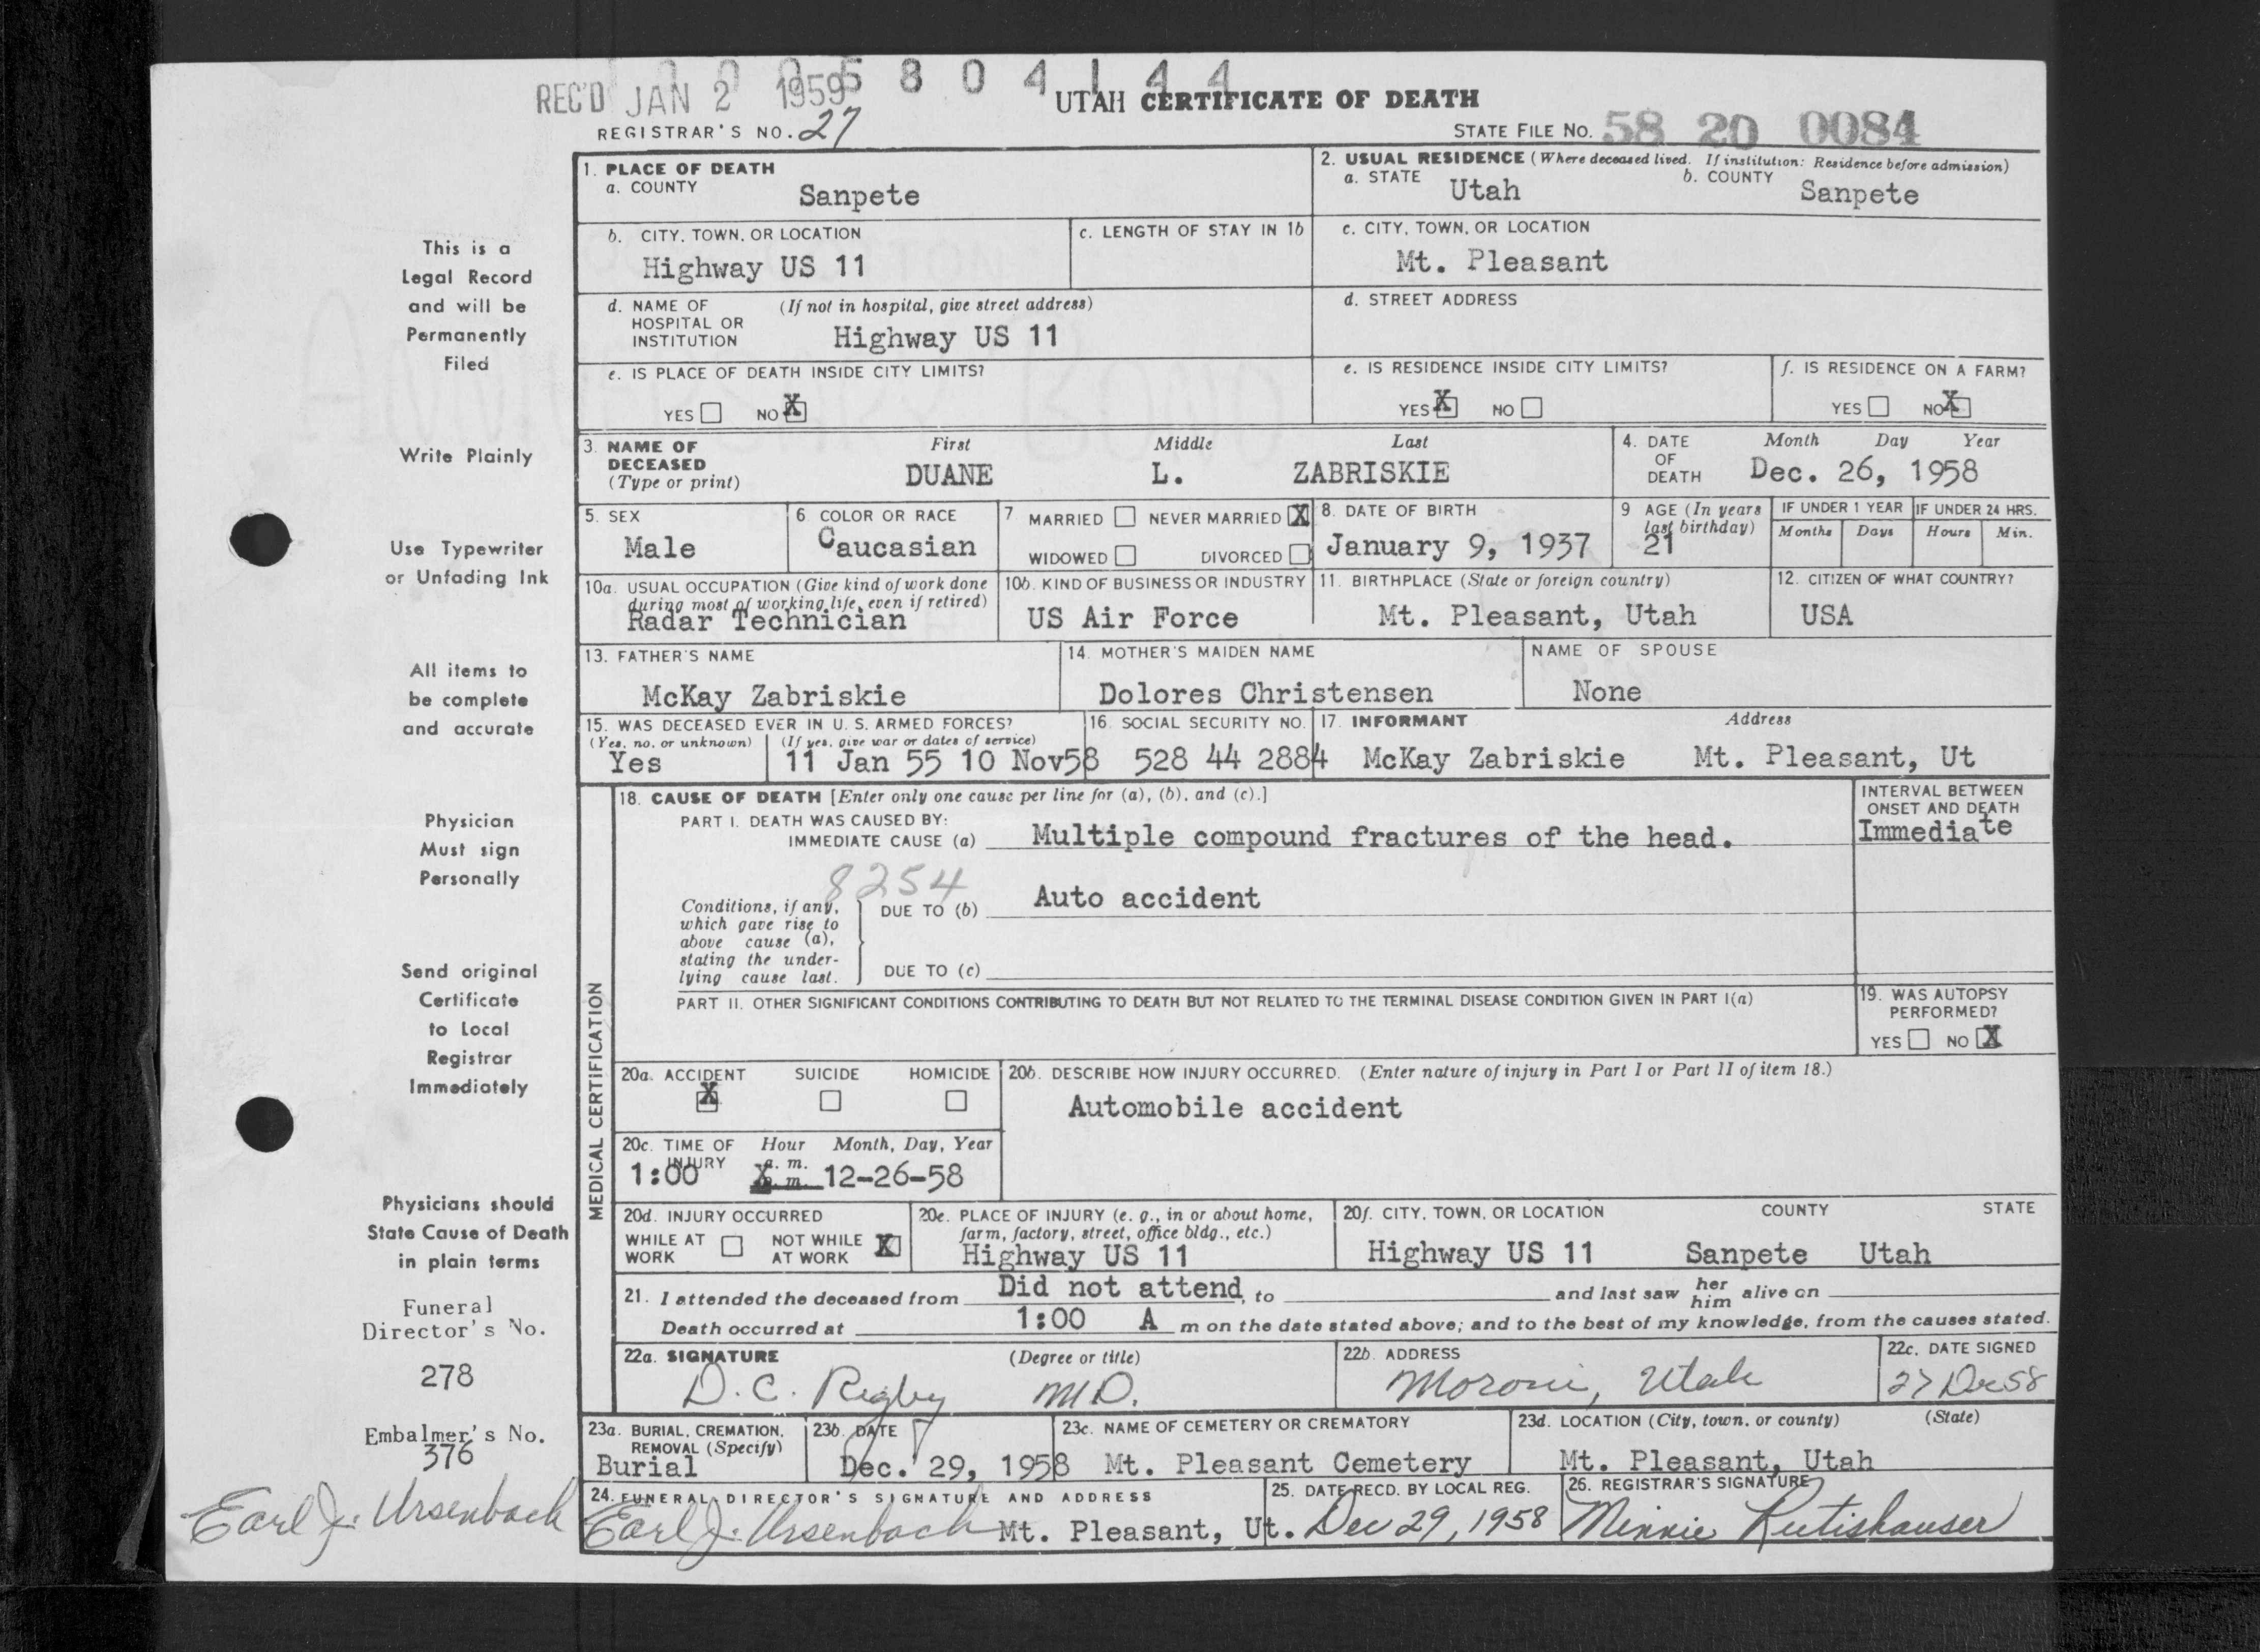 0 0 0 5 8 0 4 1 4 4
REC'D JAN 2 1959
UTAH CERTIFICATE OF DEATH
REGISTRAR'S NO. 27
STATE FILE NO. 58 20 0084
1. PLACE OF DEATH
a. COUNTY Sanpete
2. USUAL RESIDENCE (Where deceased lived. If institution: Residence before admission)
a. STATE Utah b. COUNTY Sanpete
b. CITY, TOWN, OR LOCATION
Highway US 11
c. LENGTH OF STAY IN 1b
c. CITY, TOWN, OR LOCATION
Mt. Pleasant
d. NAME OF HOSPITAL OR INSTITUTION (If not in hospital, give street address)
Highway US 11
d. STREET ADDRESS
e. IS PLACE OF DEATH INSIDE CITY LIMITS?
YES NO X
e. IS RESIDENCE INSIDE CITY LIMITS?
YES X NO
f. IS RESIDENCE ON A FARM?
YES NO X
3. NAME OF DECEASED (Type or print)
First Middle Last
DUANE L. ZABRISKIE
4. DATE OF DEATH Month Day Year
Dec. 26, 1958
5. SEX
Male
6. COLOR OR RACE
Caucasian
7 MARRIED NEVER MARRIED X
WIDOWED DIVORCED
8. DATE OF BIRTH
January 9, 1937
9 AGE (In years last birthday)
21
IF UNDER 1 YEAR
Months Days
IF UNDER 24 HRS.
Hours Min.
10a. USUAL OCCUPATION (Give kind of work done during most of working life, even if retired)
Radar Technician
10b. KIND OF BUSINESS OR INDUSTRY
US Air Force
11. BIRTHPLACE (State or foreign country)
Mt. Pleasant, Utah
12. CITIZEN OF WHAT COUNTRY?
USA
13. FATHER'S NAME
McKay Zabriskie
14. MOTHER'S MAIDEN NAME
Dolores Christensen
NAME OF SPOUSE
None
15. WAS DECEASED EVER IN U. S. ARMED FORCES?
(Yes, no, or unknown) (If yes, give war or dates of service)
Yes 11 Jan 55 10 Nov58
16. SOCIAL SECURITY NO.
528 44 2884
17. INFORMANT Address
McKay Zabriskie Mt. Pleasant, Ut
MEDICAL CERTIFICATION
18. CAUSE OF DEATH [Enter only one cause per line for (a), (b), and (c).]
PART I. DEATH WAS CAUSED BY:
IMMEDIATE CAUSE (a) Multiple compound fractures of the head.
INTERVAL BETWEEN ONSET AND DEATH
Immediate
8254
Conditions, if any, which gave rise to above cause (a), stating the underlying cause last.
DUE TO (b) Auto accident
DUE TO (c)
PART II. OTHER SIGNIFICANT CONDITIONS CONTRIBUTING TO DEATH BUT NOT RELATED TO THE TERMINAL DISEASE CONDITION GIVEN IN PART I(a)
19. WAS AUTOPSY PERFORMED?
YES NO X
20a. ACCIDENT SUICIDE HOMICIDE
X
20b. DESCRIBE HOW INJURY OCCURRED. (Enter nature of injury in Part I or Part II of item 18.)
Automobile accident
20c. TIME OF INJURY Hour Month, Day, Year
1:00 X a. m. p. m. 12-26-58
20d. INJURY OCCURRED
WHILE AT WORK NOT WHILE AT WORK X
20e. PLACE OF INJURY (e. g., in or about home, farm, factory, street, office bldg., etc.)
Highway US 11
20f. CITY, TOWN, OR LOCATION COUNTY STATE
Highway US 11 Sanpete Utah
21. I attended the deceased from Did not attend, to and last saw her him alive on
Death occurred at 1:00 A m on the date stated above; and to the best of my knowledge, from the causes stated.
22a. SIGNATURE (Degree or title)
D. C. Rigby M.D.
22b. ADDRESS
Moroni, Utah
22c. DATE SIGNED
27 Dec 58
23a. BURIAL, CREMATION, REMOVAL (Specify)
Burial
23b. DATE
Dec. 29, 1958
23c. NAME OF CEMETERY OR CREMATORY
Mt. Pleasant Cemetery
23d. LOCATION (City, town, or county) (State)
Mt. Pleasant, Utah
24. FUNERAL DIRECTOR'S SIGNATURE AND ADDRESS
Earl J. Ursenbach Mt. Pleasant, Ut.
25. DATE RECD. BY LOCAL REG.
Dec 29, 1958
26. REGISTRAR'S SIGNATURE
Minnie Rutishauser
This is a
Legal Record
and will be
Permanently
Filed
Write Plainly
Use Typewriter
or Unfading Ink
All items to
be complete
and accurate
Physician
Must sign
Personally
Send original
Certificate
to Local
Registrar
Immediately
Physicians should
State Cause of Death
in plain terms
Funeral
Director's No.
278
Embalmer's No.
376
Earl J. Ursenbach